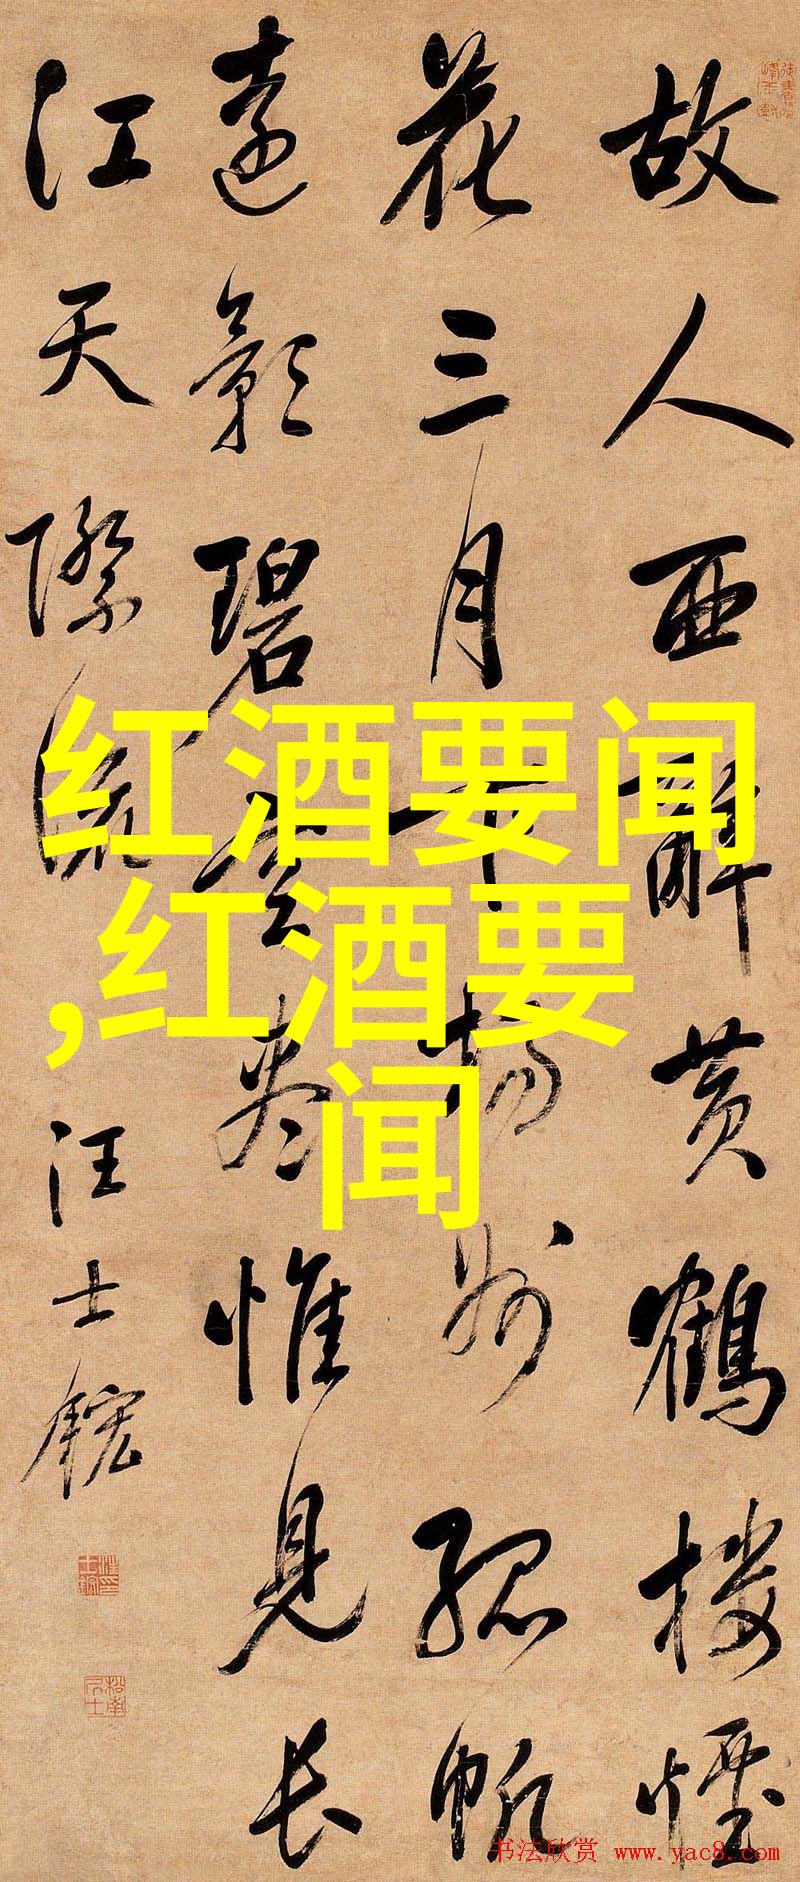 故人西辭黄鶴楼煙
花三月下揚州孤帆
遠影碧空盡惟見长
江天際流
汪士鋐
红酒要闻
,红酒要
闻
书法欣赏 www.yac8.com